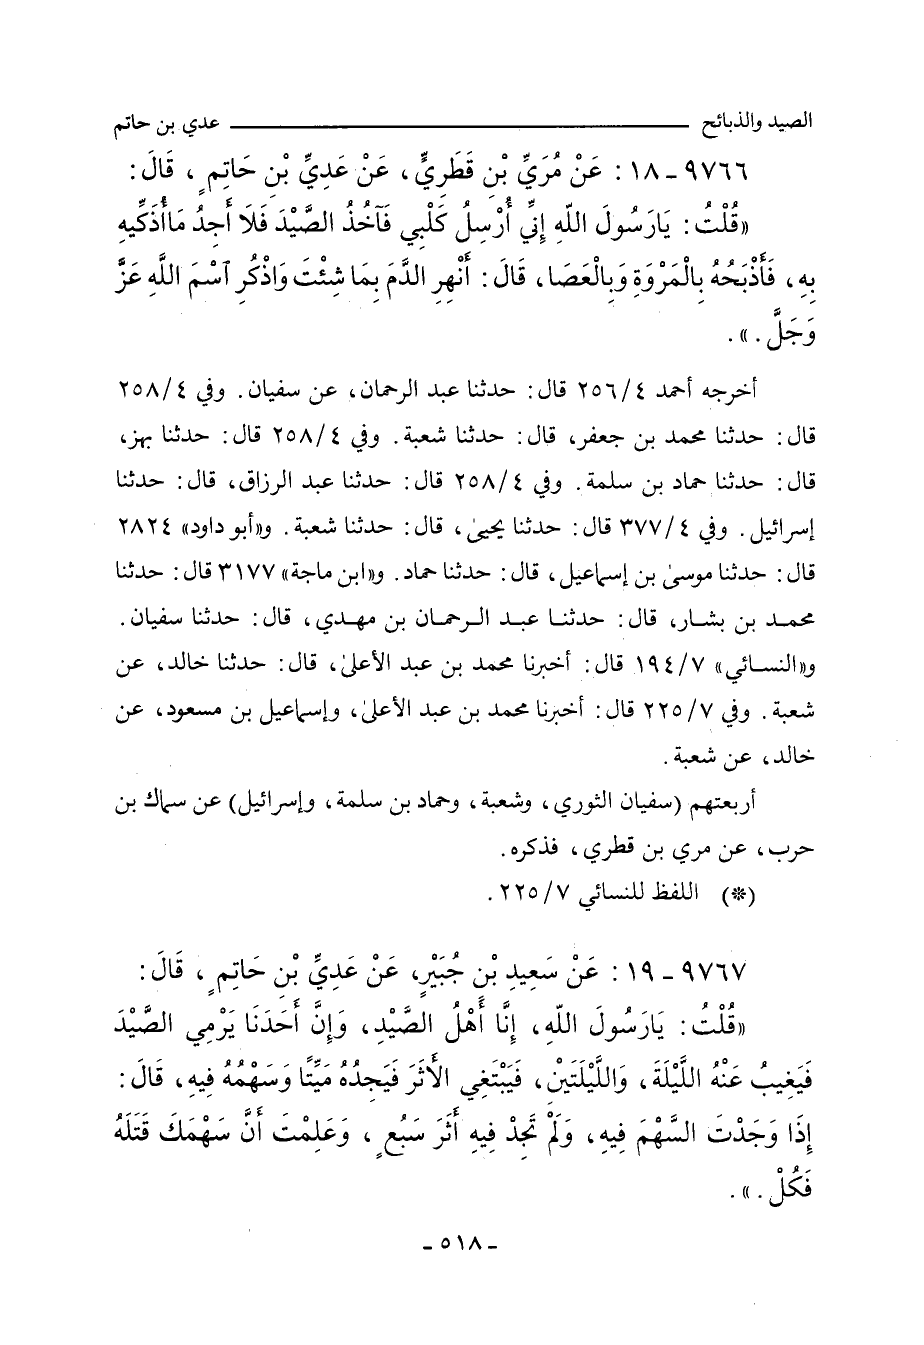 الصيد والذبائح ــــــــــــــــــــ عدي بن حاتم
٩٧٦٦ - ١٨ : عَنْ مُرَيِّ بْنِ قَطَرِيٍّ، عَنْ عَدِيِّ بْنِ حَاتِمٍ، قَالَ:
«قُلْتُ: يَارَسُولَ اللّهِ إِنِّي أُرْسِلُ كَلْبِي فَآخُذُ الصَّيْدَ فَلَا أَجِدُ مَاأُذَكِّيهِ
بِهِ، فَأَذْبَحُهُ بِالْمَرْوَةِ وَبِالْعَصَا، قَالَ: أَنْهِرِ الدَّمَ بِمَا شِئْتَ وَاذْكُرِ ٱسْمَ اللَّهِ عَزَّ
وَجَلَّ.».
أخرجه أحمد ٢٥٦/٤ قال: حدثنا عبد الرحمان، عن سفيان. وفي ٢٥٨/٤
قال: حدثنا محمد بن جعفر، قال: حدثنا شعبة. وفي ٢٥٨/٤ قال: حدثنا بهز،
قال: حدثنا حماد بن سلمة. وفي ٢٥٨/٤ قال: حدثنا عبد الرزاق، قال: حدثنا
إسرائيل. وفي ٣٧٧/٤ قال: حدثنا يحيىٰ، قال: حدثنا شعبة. و«أبو داود» ٢٨٢٤
قال: حدثنا موسىٰ بن إسماعيل، قال: حدثنا حماد. و«ابن ماجة» ٣١٧٧ قال: حدثنا
محمد بن بشار، قال: حدثنا عبد الرحمان بن مهدي، قال: حدثنا سفيان.
و«النسائي» ١٩٤/٧ قال: أخبرنا محمد بن عبد الأعلىٰ، قال: حدثنا خالد، عن
شعبة. وفي ٢٢٥/٧ قال: أخبرنا محمد بن عبد الأعلىٰ، وإسماعيل بن مسعود، عن
خالد، عن شعبة.
أربعتهم (سفيان الثوري، وشعبة، وحماد بن سلمة، وإسرائيل) عن سماك بن
حرب، عن مري بن قطري، فذكره.
(*) اللفظ للنسائي ٢٢٥/٧.
٩٧٦٧ - ١٩ : عَنْ سَعِيدِ بْنِ جُبَيْرٍ، عَنْ عَدِيِّ بْنِ حَاتِمٍ، قَالَ:
«قُلْتُ: يَارَسُولَ اللّهِ، إِنَّا أَهْلُ الصَّيْدِ، وَإِنَّ أَحَدَنَا يَرْمِي الصَّيْدَ
فَيَغِيبُ عَنْهُ اللَّيْلَةَ، وَاللَّيْلَتَيْنِ، فَيَبْتَغِي الْأَثَرَ فَيَجِدُهُ مَيِّتًا وَسَهْمُهُ فِيهِ، قَالَ:
إِذَا وَجَدْتَ السَّهْمَ فِيهِ، وَلَمْ تَجِدْ فِيهِ أَثَرَ سَبُعٍ، وَعَلِمْتَ أَنَّ سَهْمَكَ قَتَلَهُ
فَكُلْ.».
- ٥١٨ -